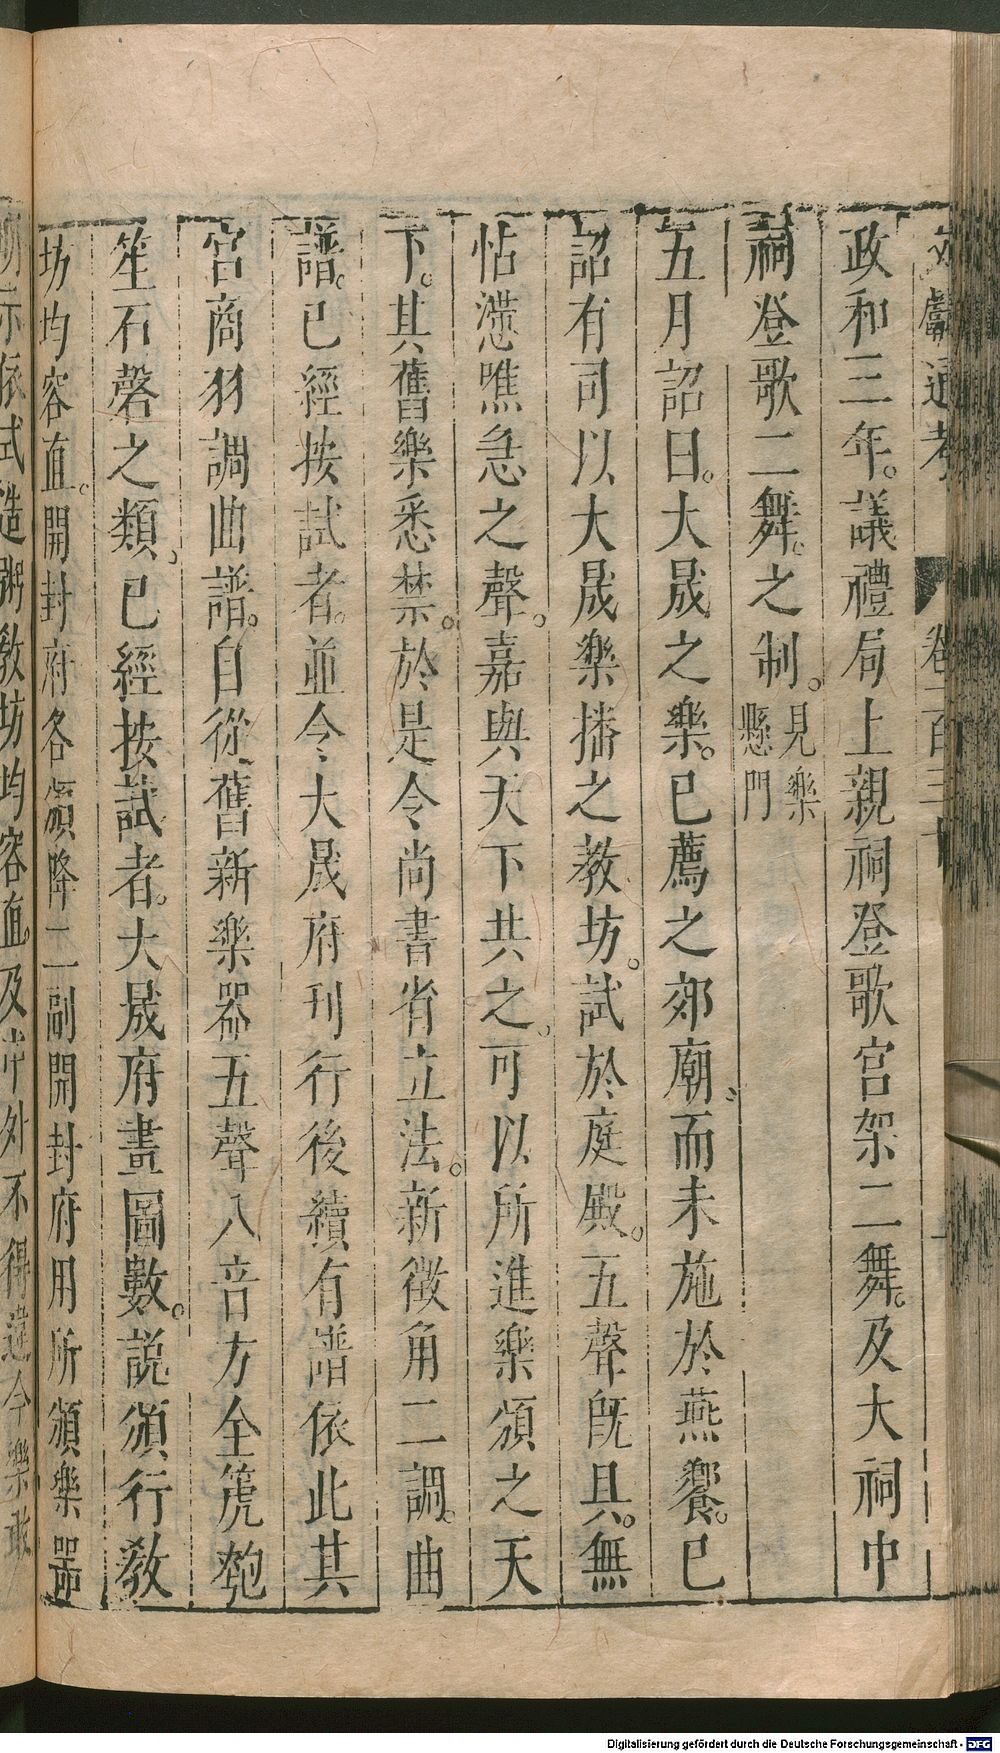 文獻通考 卷一百三十
政和三年。議禮局上親祠登歌宮架二舞。及大祠中
祠登歌二舞。之制。見樂懸門
五月詔曰。大晟之樂。已薦之郊廟。而未施於燕饗。已
詔有司以大晟樂播之教坊。試於庭殿。五聲旣具。無
怗懘噍急之聲。嘉與天下共之。可以所進樂頒之天
下。其舊樂悉禁。於是令尚書省立法。新徵角二調。曲
譜。已經按試者。並令大晟府刋行後續有譜依此其
宮商羽調曲譜。自從舊新樂器五聲八音方全箎匏
笙石磬之類。已經按試者。大晟府畫圖數。説頒行教
坊均容直。開封府各頒降二副開封府用所頒樂器
明示依式造粥教坊均容直及中外不得違今樂敢
Digitalisierung gefördert durch die Deutsche Forschungsgemeinschaft - DFG